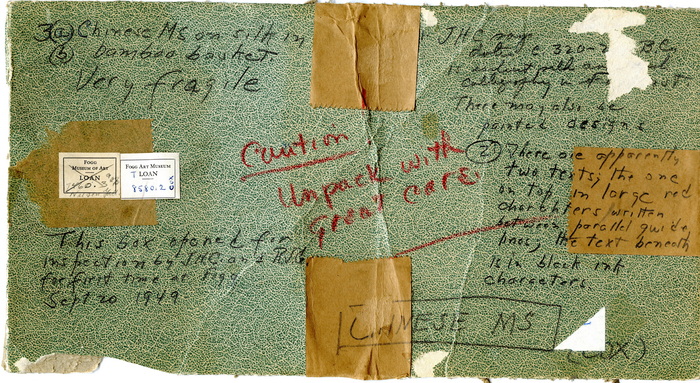 3(a) Chinese MS on silk in
(b) bamboo basket.
Very fragile
FOGG
MUSEUM OF ART
LOAN
FOGG ART MUSEUM
T LOAN
8580.2
COX
This box opened for
inspection by JHC and
for first time at Fogg
Sept 20 1949
Caution.
Unpack with
great care.
JHC says
B.C.
calligraphy
There may also be
painted designs
(2) There are apparently
two texts; the one
top in large red
characters written
between parallel guide
lines; the text beneath
is in black ink
characters.
CHINESE MS
(COX)